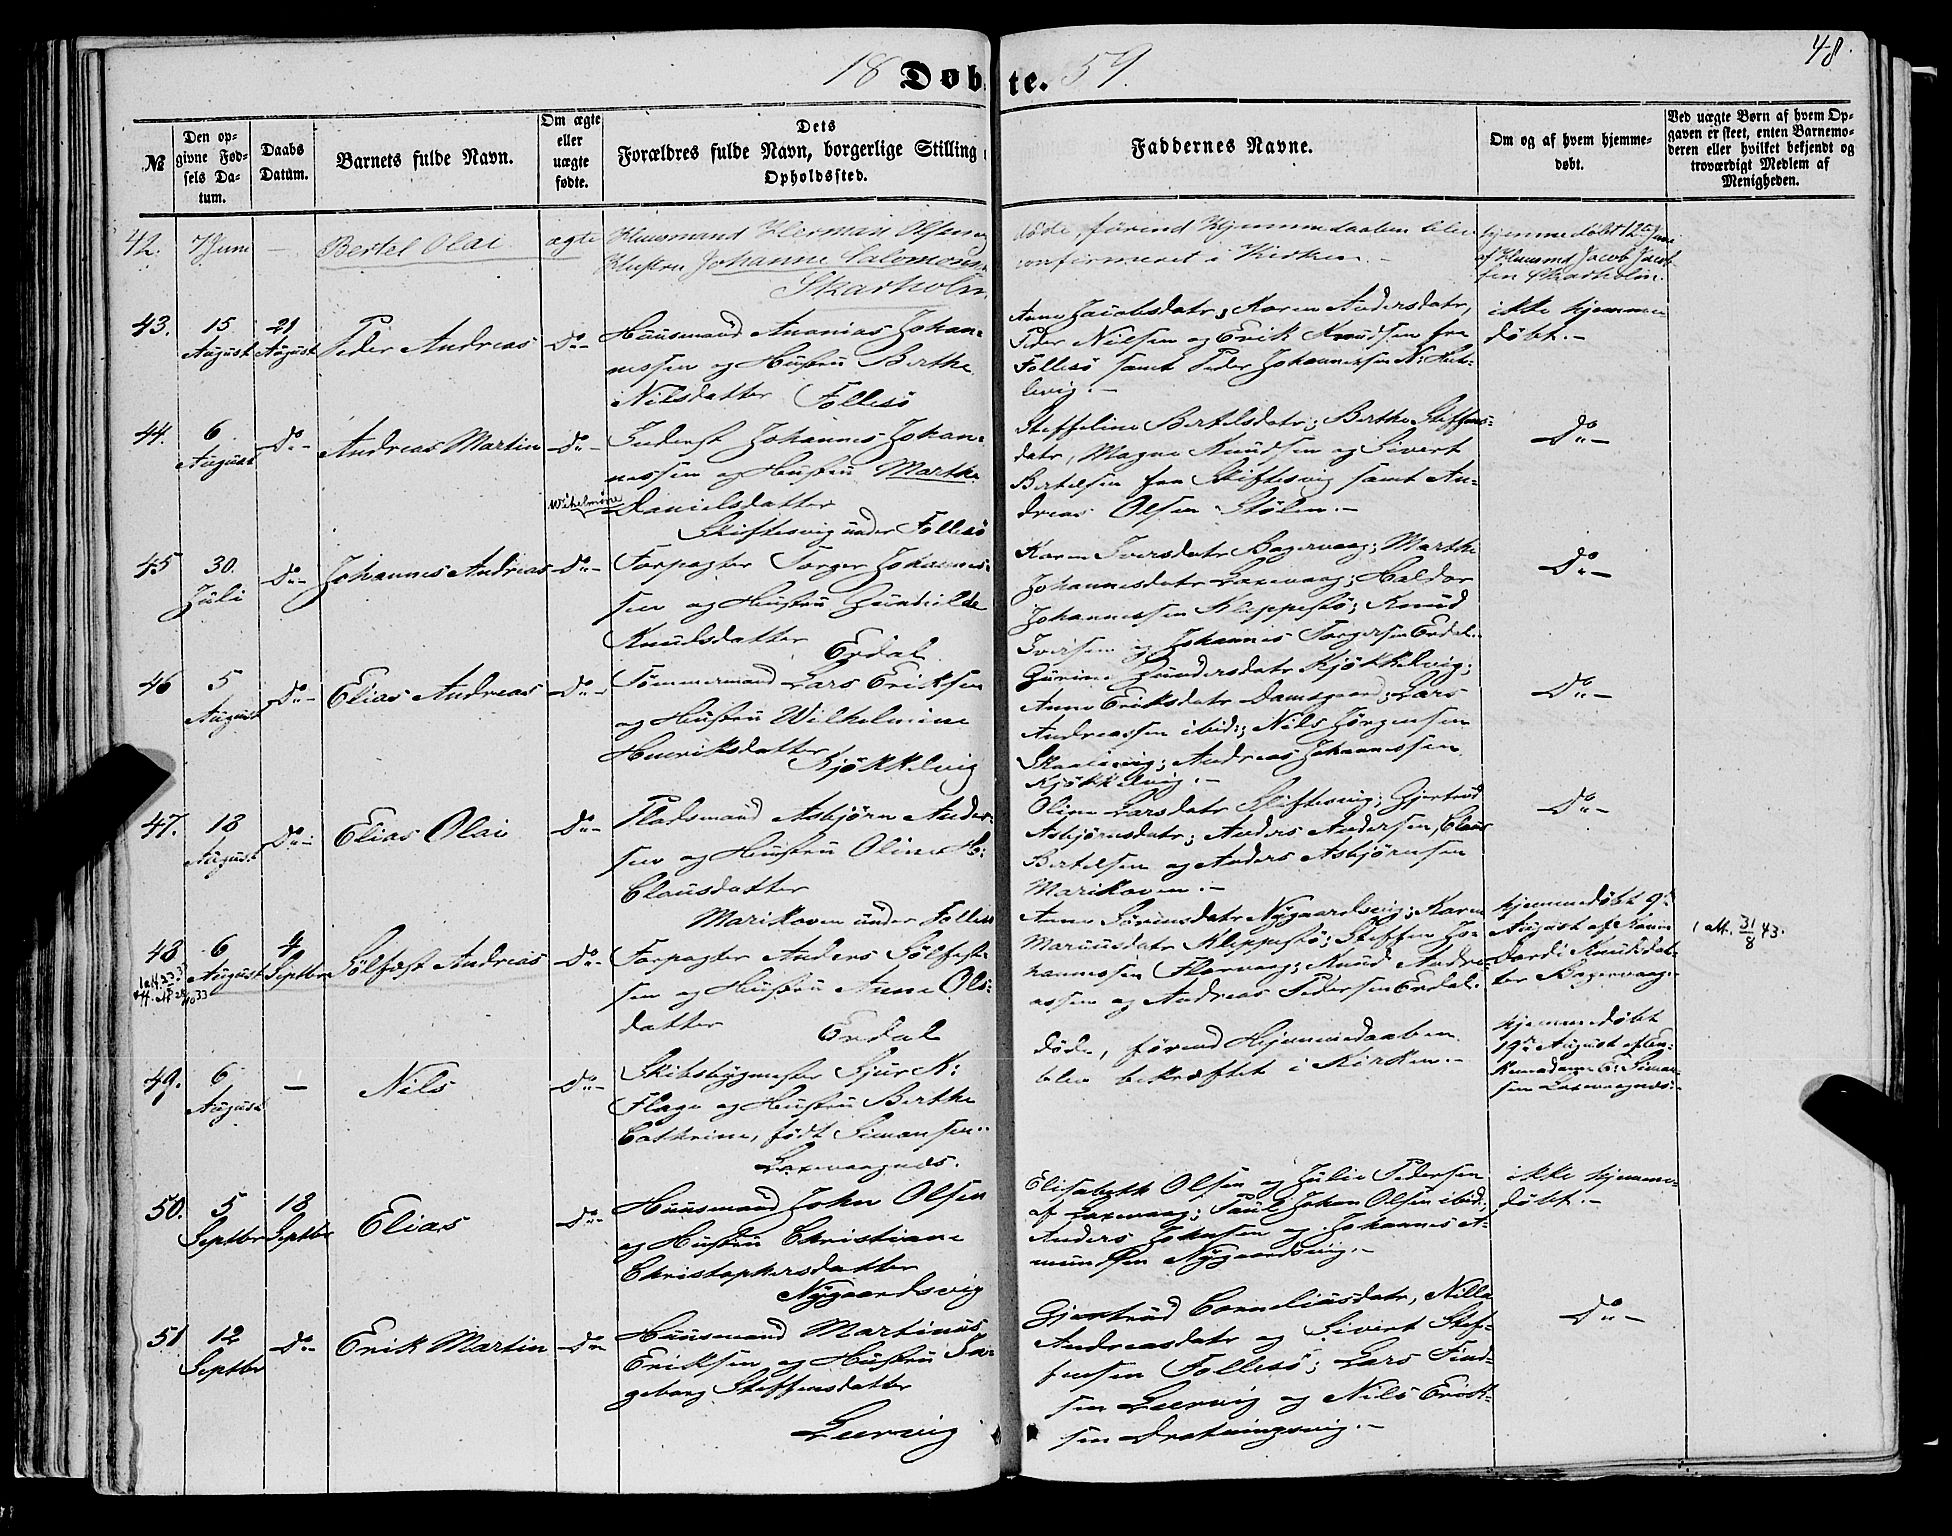 48.
18 Døbte. 59.
№
Den op-
givne Fød-
sels Da-
tum.
Daabs
Datum.
Barnets fulde Navn.
Om ægte
eller
uægte
fødte.
Dets
Forældres fulde Navn, borgerlige Stilling
Opholdssted.
Faddernes Navne.
Om og af hvem hjemme-
døbt.
Ved uægte Børn af hvem Op-
gaven er skeet, enten Barnemo-
deren eller hvilket bekjendt og
troværdigt Medlem af
Menigheden.
42. 7 Juni — Bertel Olai ægte
Huusmand Herman Olsen og
Hustru Johanne Salomons-
Skarholm
døde, førend Hjemmedaaben blev
confirmeret i Kirken.-
hjemmedøbt 12te Juni
af Huusmd Jacob Jacob-
sen Skarholm.-
43. 15 August 21 August Peder Andreas Do-
Huusmand Ananias Johan-
nessen og Hustru Berthe
Nilsdatter Follesö
Anne Jacobsdatr, Karen Andersdatr,
Peder Nilsen og Erik Knudsen fra
Follesö samt Peder Johannessen
ikke hjemme
døbt.-
44. 6 August Do- Andreas Martin Do-
Inderst Johannes Johan-
nessen og Hustru Marthe
Wilhelmine
Danielsdatter
Skiftesvig under Follesö
Steffeline Bertelsdatr; Berthe Steffens-
datr, Magne Knudsen og Sivert
Bertelsen fra Skiftesvig samt An-
dreas Olsen Stølen.-
Do-
45 30. Juli Do- Johannes Andreas Do-
Forpagter Torger Johannes-
sen og Hustru Gunhilde
Knudsdatter Erdal
Karen Iversdatr Bagervaag; Marthe
Johannesdatr Laxevaag; Haldor
Johannessen Kleppestö; Knud
Iversen og Johannes Torgersen Erdal.
Do-
46 5 August Do- Elias Andreas Do-
Tömmermand Lars Eriksen
og Hustru Wilhelmine
Henriksdatter
Kjökkelvig
Gurine Gundersdatr Kjökkelvig;
Anne Eriksdatr Damsgaard; Lars
Andreassen ibid:; Nils Jörgensen
Andreas Johannessen
Kjökkelvig.-
Do-
47. 18 August Do- Elias Olai Do-
Pladsmand Asbjörn Ander-
sen og Hustru Oline H:
Clausdatter
Marikoven under Follesö
Oline Larsdatr Skiftesvig; Gjertrud
Asbjörnsdatr; Anders Andersen, Claus
Bertelsen og Anders Asbjörnsen
Marikoven.-
Do-
48 6 August 4 Septbr Sölfæst Andreas Do-
Forpagter Anders Sölfest-
sen og Hustru Anne Ols-
datter Erdal
Anne Sörensdatr Nygaardsvig; Karen
Kleppestö; Steffen Jo-
hannessen Florvaag; Knud Andre-
assen og Andreas Pedersen Erdal.
hjemmedøbt 9de
August af Konen
Dordi Knudsdat-
ter Bagervaag.-
1 att. 31/8 43.
49. 6 August — Nils Do-
Skibsbygmester Sjur K:
Flage og Hustru Berthe
Cathrine, født Simonsen..
Laxevaagnæs.
døde, førend Hjemmedaaben
blev bekræftet i Kirken.-
hjemmedøbt
19de August af En-
kemadame E: Simon-
sen Laxevaagnæs.-
50. 5 Septbr 18 Septbr Elias Do-
Huusmand John Olsen
og Hustru Christiane
Christophersdatter
Nygaardsvig
Elisabeth Olsen og Julie Pedersen
af Laxevaag; Paul Johan Olsen ibid;
Anders Johnsen og Johannes A-
mundsen Nygaardsvig.-
ikke hjemme-
døbt.-
51 12 Septbr Do- Erik Martin Do-
Huusmand Martinus
Eriksen og Hustru In-
geborg Steffensdatter
Leervig
Gjertrud Corneliusdatr, Nille
Andreasdatr og Sivert Stef-
fensen Follesö; Lars
sen Leervig og Nils Erik-
sen Dronningsvig.-
Do-